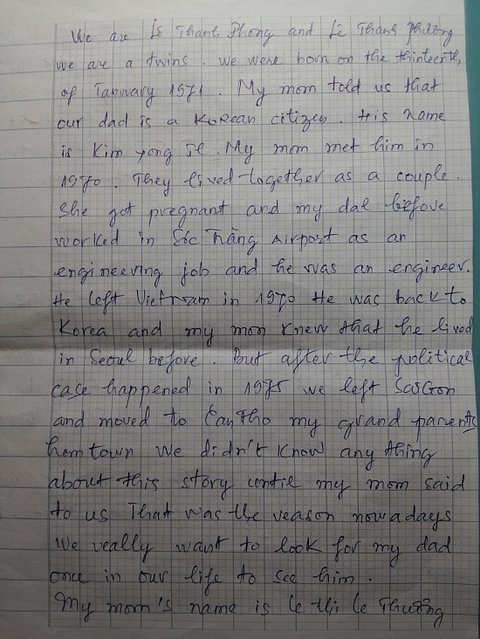 We are Lê Thanh Phong and Lê Thanh Phương
we are a twins. we were born on the thinteenth
of January 1971. My mom told us that
our dad is a Korean citizen. His name
is Kim yong il. My mom met him in
1970. They lived together as a couple.
She got pregnant and my dad before
worked in Sóc Trăng Airport as an
engineering job and he was an engineer.
He left Vietnam in 1970 He was back to
Korea and my mom knew that he lived
in Seoul before. But after the political
case happened in 1975 we left SaiGon
and moved to CanTho my grand parents
homtown we didn't know any thing
about this story until my mom said
to us That was the reason nowadays
we really want to look for my dad
once in our life to see him.
My mom's name is le thi le Thường